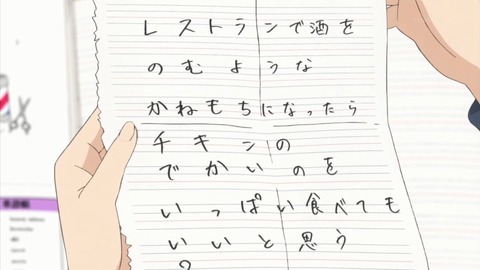 レストランで酒を
のむような
かねもちになったら
チキンの
でかいのを
いっぱい食べても
いいと思う
?